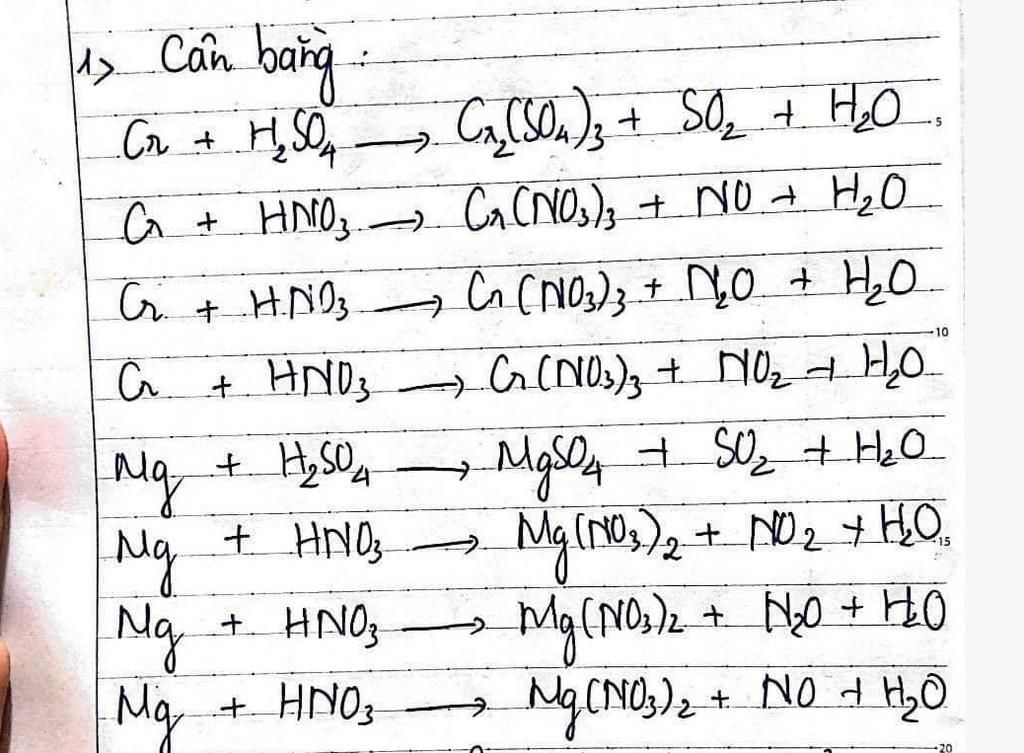 1> Cân bằng :
Cr + H₂SO₄ → Cr₂(SO₄)₃ + SO₂ + H₂O 5
Cr + HNO₃ → Cr(NO₃)₃ + NO + H₂O
Cr + HNO₃ → Cr(NO₃)₃ + N₂O + H₂O
10
Cr + HNO₃ → Cr(NO₃)₃ + NO₂ + H₂O
Mg + H₂SO₄ → MgSO₄ + SO₂ + H₂O
Mg + HNO₃ → Mg(NO₃)₂ + NO₂ + H₂O 15
Mg + HNO₃ → Mg(NO₃)₂ + N₂O + H₂O
Mg + HNO₃ → Mg(NO₃)₂ + NO + H₂O
20